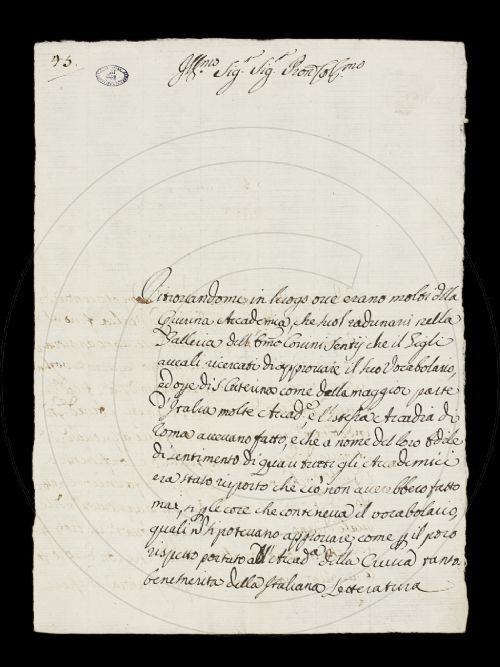 95.
Ill.mo Sig.r Sig.r Pron Col.mo
Ritrovandomi in luogo ove erano molti della
Accademia, che suol radunarsi nella
Galleria dell' Em̃o Corsini sentij che il Gigli
aveali ricercati di approvare il suo Vocabolario,
ed op.e di S. Caterina come della maggior parte
d'Italia molte Accad.e, e l'istessa Arcadia di
Roma avevano fatto, e che a nome del loro
di sentimento di quasi tutti gli Accademici
era stato risposto che ciò non averebbero fatto
mai, p le cose che conteneva il vocabolario,
quali nõ si potevano approvare, come p il poco
rispetto portato all' Accad.a della Crusca tanto
benemerita della Italiana Letteratura